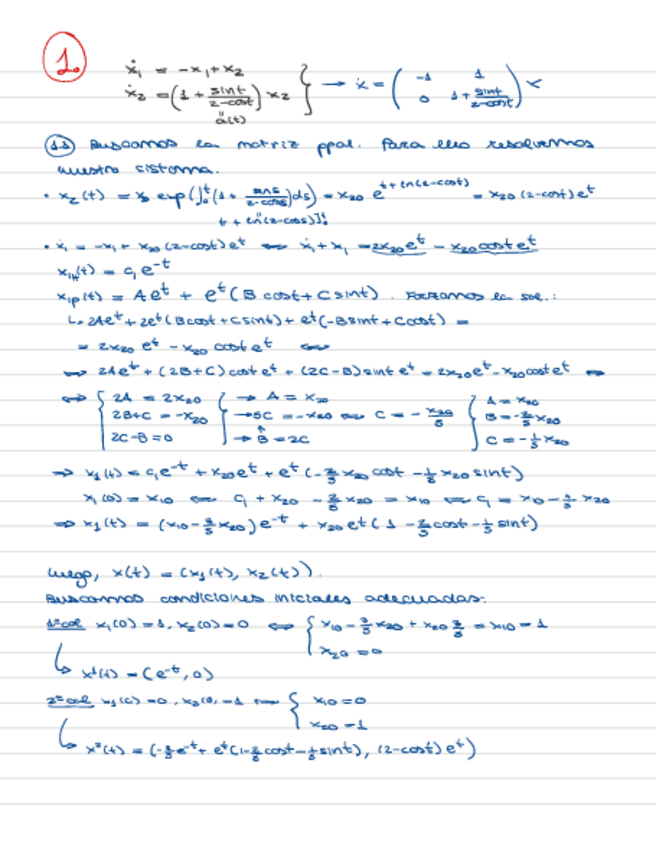 1.
ẋ₁ = -x₁ + x₂
ẋ₂ = (1 + sint/(2-cost)) x₂ } → ẋ = ( -1 1 ; 0 1 + sint/(2-cost) ) x
a(t)
1.1 Buscamos la matriz ppal. Para ello resolvemos
nuestro sistema.
• x₂(t) = x₂₀ exp(∫₀ᵗ (1 + sins/(2-coss)) ds) = x₂₀ e^(t + ln(2-cost)) = x₂₀ (2-cost) eᵗ
t + ln(2-cos)]₀ᵗ
• ẋ₁ = -x₁ + x₂₀ (2-cost) eᵗ ⟺ ẋ₁ + x₁ = 2x₂₀eᵗ - x₂₀ cost eᵗ
x₁ₕ(t) = c₁e⁻ᵗ
x₁ₚ(t) = Aeᵗ + eᵗ(B cost + C sint). Forzamos la sol.:
↳ 2Aeᵗ + 2eᵗ(Bcost + Csint) + eᵗ(-Bsint + Ccost) =
= 2x₂₀ eᵗ - x₂₀ cost eᵗ ⟺
⟺ 2Aeᵗ + (2B+C) cost eᵗ + (2C-B) sint eᵗ = 2x₂₀eᵗ - x₂₀cost eᵗ ⟺
⟺ { 2A = 2x₂₀ } → A = x₂₀ { A = x₂₀
2B+C = -x₂₀ → 5C = -x₂₀ ⟺ C = -x₂₀/5 B = -2/5 x₂₀
2C-B = 0 → B = 2C C = -1/5 x₂₀
⟹ x₁(t) = c₁e⁻ᵗ + x₂₀eᵗ + eᵗ(-2/5 x₂₀ cost - 1/5 x₂₀ sint)
x₁(0) = x₁₀ ⟺ c₁ + x₂₀ - 2/5 x₂₀ = x₁₀ ⟺ c₁ = x₁₀ - 3/5 x₂₀
⟹ x₁(t) = (x₁₀ - 3/5 x₂₀) e⁻ᵗ + x₂₀ eᵗ (1 - 2/5 cost - 1/5 sint)
Luego, x(t) = (x₁(t), x₂(t)).
Buscamos condiciones iniciales adecuadas:
1ª col x₁(0) = 1, x₂(0) = 0 ⟺ { x₁₀ - 3/5 x₂₀ + x₂₀ 3/5 = x₁₀ = 1
x₂₀ = 0
↳ x¹(t) = (e⁻ᵗ, 0)
2ª col x₁(0) = 0, x₂(0) = 1 ⟺ { x₁₀ = 0
x₂₀ = 1
↳ x²(t) = (-3/5 e⁻ᵗ + eᵗ(1 - 2/5 cost - 1/5 sint), (2-cost) eᵗ)